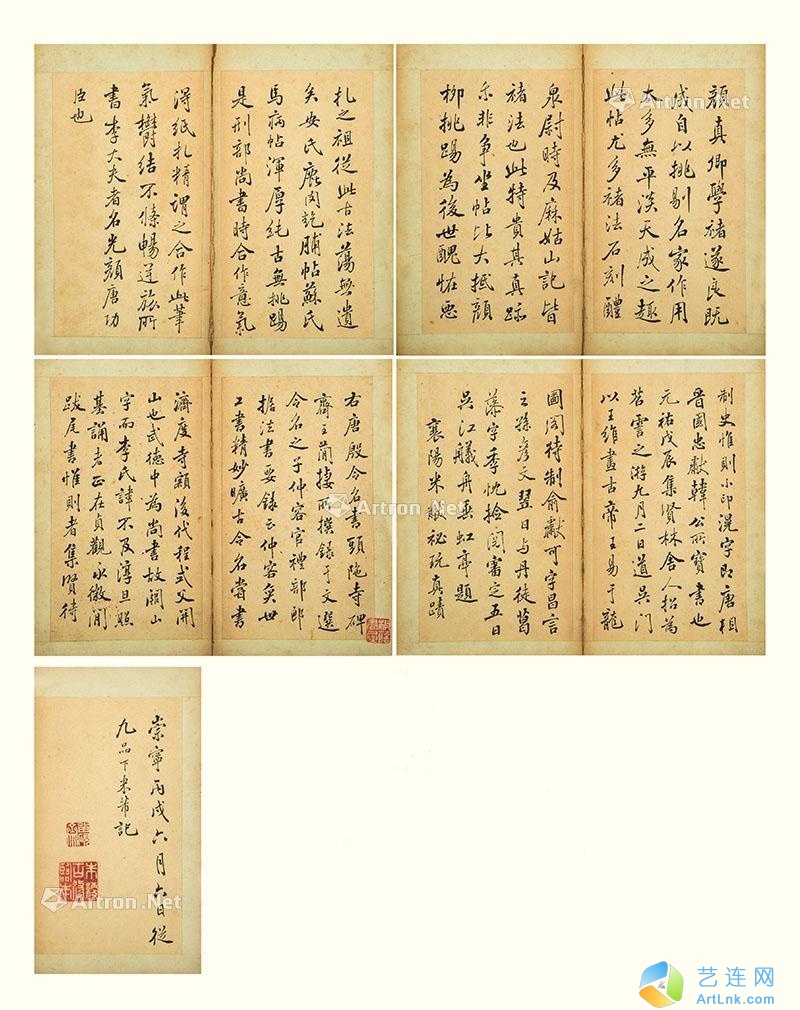 顏真卿學褚遂良既
成自以挑剔名家作用
太多無平淡天成之趣
此帖尤多褚法石刻醴
泉尉時及麻姑山記皆
褚法也此特貴其真跡
尔非爭坐帖比大抵顏
柳挑踢為後世醜怪惡
札之祖從此古法蕩無遺
矣安氏鹿肉乾脯帖蘇氏
馬病帖渾厚純古無挑踢
是刑部尚書時合作意氣
得紙札精謂之合作此筆
氣鬱結不條暢逆旅所
書李大夫者名光顏唐功
臣也
右唐殷令名書頭陁寺碑
齊王簡棲所撰錄于文選
令名之子仲容官禮部郎
據法書要錄云仲容奕世
工書精妙曠古令名嘗書
濟度寺額後代程式父開
山也武德中為尚書故闕山
字而李氏諱不及淳旦照
基誦者正在貞觀永徽間
跋尾書惟則者集賢待
制史惟則小印滉字即唐相
晉國忠獻韓公所寶書也
元祐戊辰集賢林舍人招為
苕霅之游九月二日道吳門
以王維畫古帝王易于龍
圖閣待制俞獻可字昌言
之孫彥文翌日與丹徒葛
藻字季忱撿閱審定五日
吳江艤舟垂虹亭題
襄陽米黻祕玩真蹟
崇寧丙戌六月六日從
九品下米芾記
Artron.Net
Artron.Net
Artron.Net
Artron.Net
Artron.Net
艺连网
ArtLnk.com